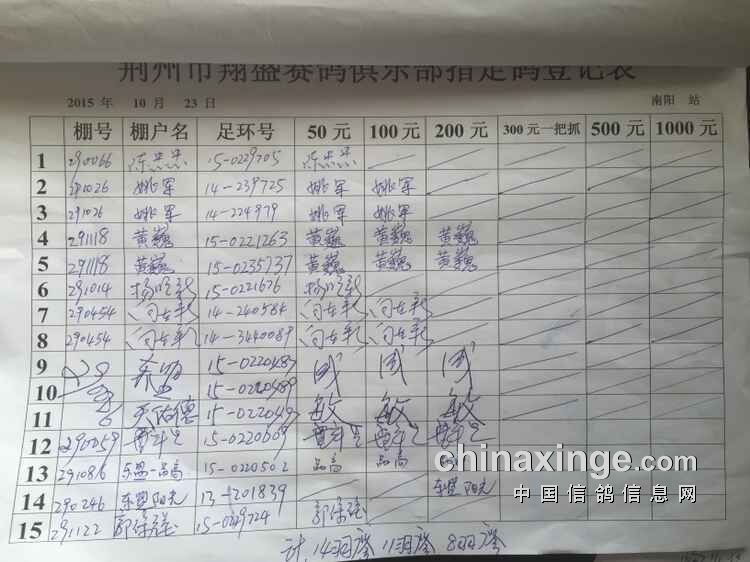 荆州市翔盛赛鸽俱乐部指定鸽登记表
2015 年 10 月 23 日 南阳 站
棚号 棚户名 足环号 50 元 100 元 200 元 300 元一把抓 500 元 1000 元
1 290066 15-0229705
2 291026 姚军 14-239725 姚军 姚军
3 291026 姚军 14-224979 姚军 姚军
4 291118 黄巍 15-0221263 黄巍 黄巍 黄巍
5 291118 黄巍 15-0235737 黄巍 黄巍 黄巍
6 291014 15-0221676
7 290454 14-240584
8 290454 14-3440089
9 15-0220487
10 15-0220489
11 15-022049 敏 敏 敏
12 290059 15-0220609
13 291086 东盟-品高 15-0220502 品高 品高
14 290246 东盟阳光 13-1201839 东盟阳光
15 291122 郭保强 15-0229724 郭保强
计. 14羽 11羽 8羽
chinaxinge.com
中国信鸽信息网